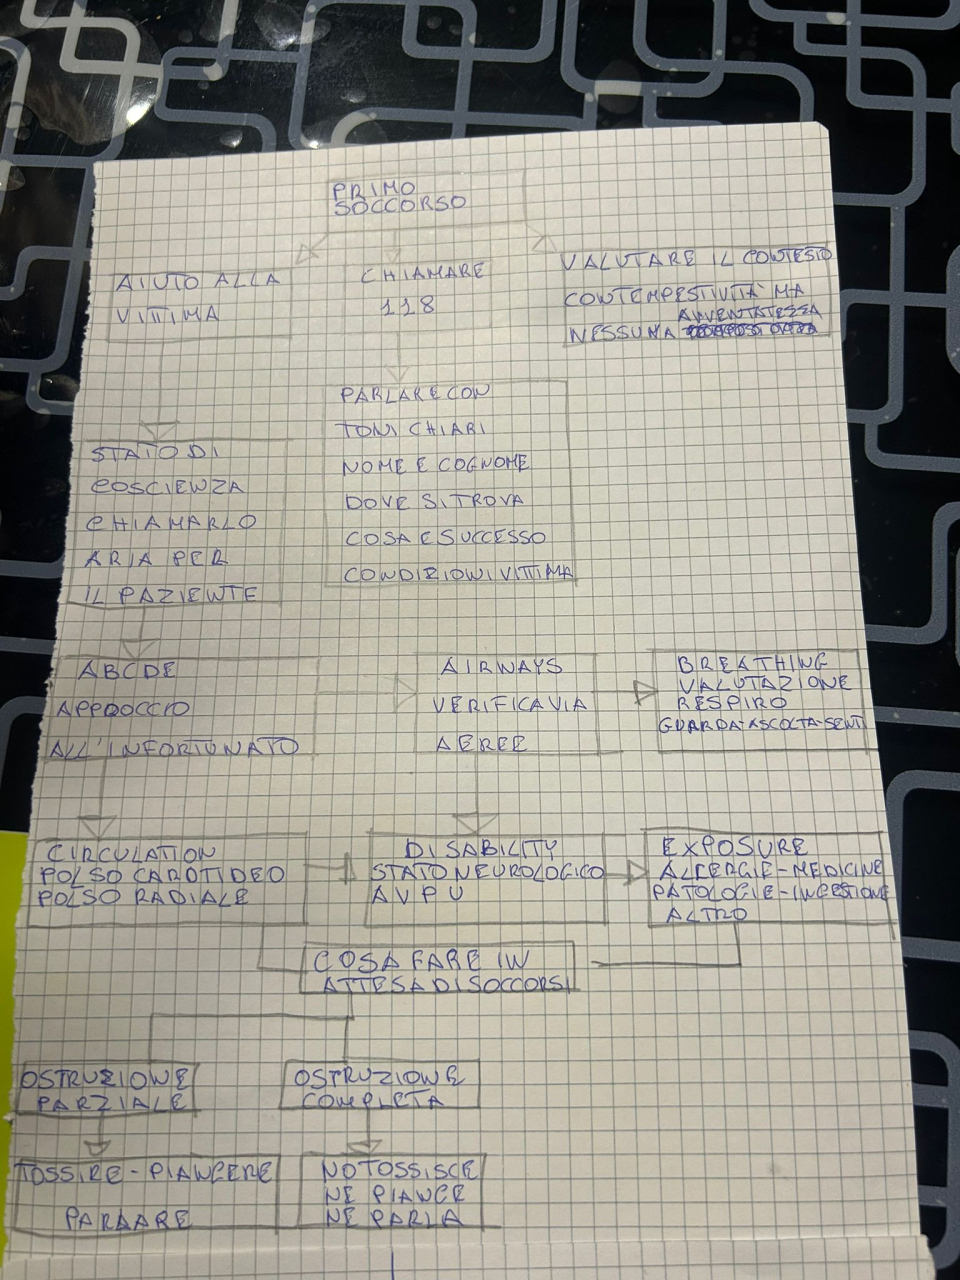 PRIMO
SOCCORSO
AIUTO ALLA
VITTIMA
CHIAMARE
118
VALUTARE IL CONTESTO
CONTEMPESTIVITÀ MA
AVVENTATEZZA
NESSUMA
STATO DI
COSCIENZA
CHIAMARLO
ARIA PER
IL PAZIENTE
PARLARE CON
TONI CHIARI
NOME E COGNOME
DOVE SI TROVA
COSA E SUCCESSO
CONDIZIONI VITTIMA
ABCDE
APPROCCIO
ALL'INFORTUNATO
AIRWAYS
VERIFICA VIA
AEREE
BREATHING
VALUTAZIONE
RESPIRO
GUARDA-ASCOLTA-SENTI
CIRCULATION
POLSO CAROTIDEO
POLSO RADIALE
DISABILITY
STATO NEUROLOGICO
AVPU
EXPOSURE
ALLERGIE-MEDICINE
PATOLOGIE-INGESTIONE
ALTRO
COSA FARE IN
ATTESA DI SOCCORSI
OSTRUZIONE
PARZIALE
OSTRUZIONE
COMPLETA
TOSSIRE-PIANGERE
PARLARE
NO TOSSISCE
NE PIANGE
NE PARLA